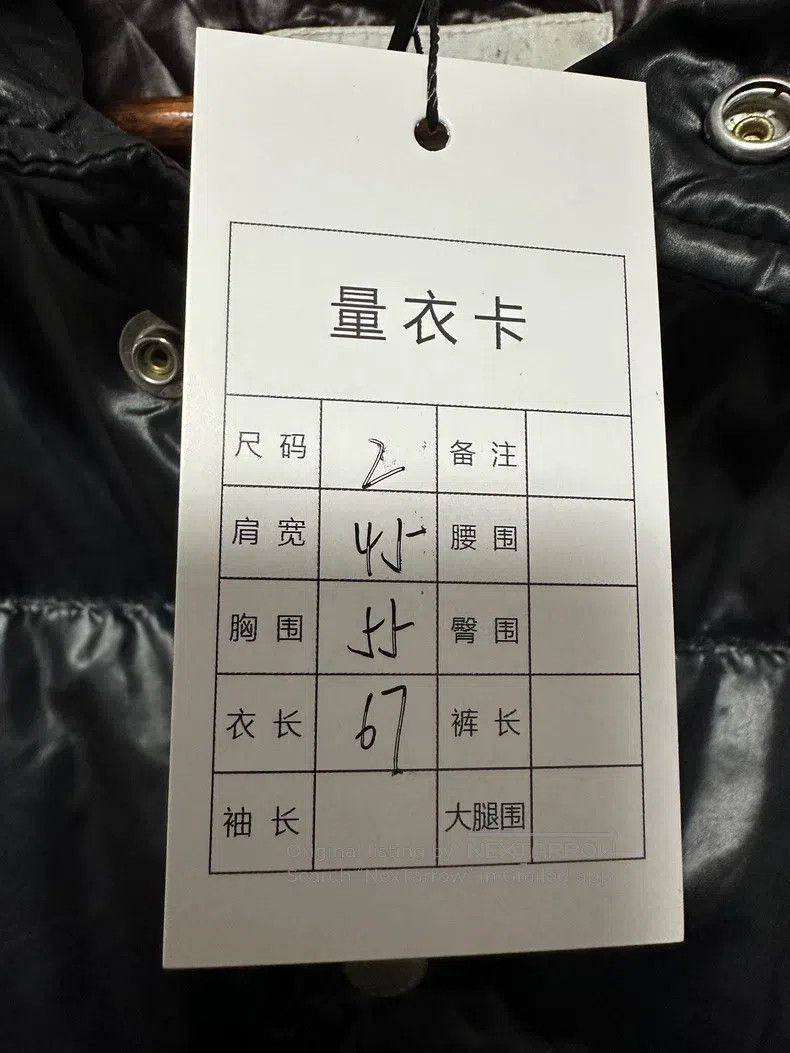 量衣卡
尺码 2 备注
肩宽 45 腰围
胸围 55 臀围
衣长 67 裤长
袖长 大腿围
Original listing by NEXTARROW
Search "NexTarrow" in Grailed app